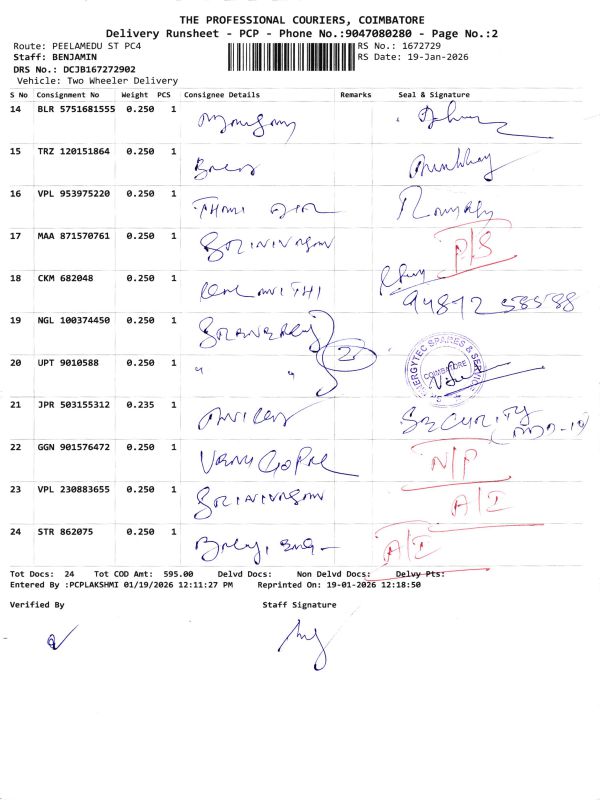 THE PROFESSIONAL COURIERS, COIMBATORE
Delivery Runsheet - PCP - Phone No.:9047080280 - Page No.:2
Route: PEELAMEDU ST PC4 RS No.: 1672729
Staff: BENJAMIN RS Date: 19-Jan-2026
DRS No.: DCJB167272902
Vehicle: Two Wheeler Delivery
S No Consignment No Weight PCS Consignee Details Remarks Seal & Signature
14 BLR 5751681555 0.250 1
15 TRZ 120151864 0.250 1
16 VPL 953975220 0.250 1
17 MAA 871570761 0.250 1 P/S
18 CKM 682048 0.250 1
94872 58588
19 NGL 100374450 0.250 1
20 UPT 9010588 0.250 1 " " 2 ENERGYTEC SPARES & SERVICE COIMBATORE
21 JPR 503155312 0.235 1 SECURITY
22 GGN 901576472 0.250 1 N/P
23 VPL 230883655 0.250 1 A/I
24 STR 862075 0.250 1 A/I
Tot Docs: 24 Tot COD Amt: 595.00 Delvd Docs: Non Delvd Docs: Delvy Pts:
Entered By :PCPLAKSHMI 01/19/2026 12:11:27 PM Reprinted On: 19-01-2026 12:18:50
Verified By Staff Signature